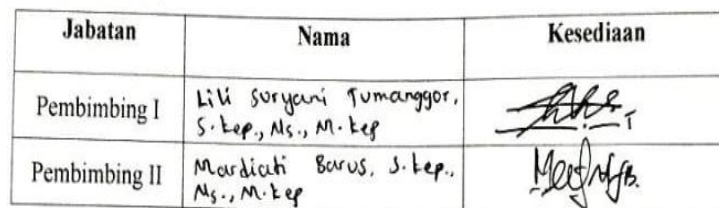 Jabatan Nama Kesediaan
Pembimbing I Lili Suryani Tumanggor,
S.kep., Ns., M.kep
Pembimbing II Mardiati Barus, S.kep.,
Ns., M.kep